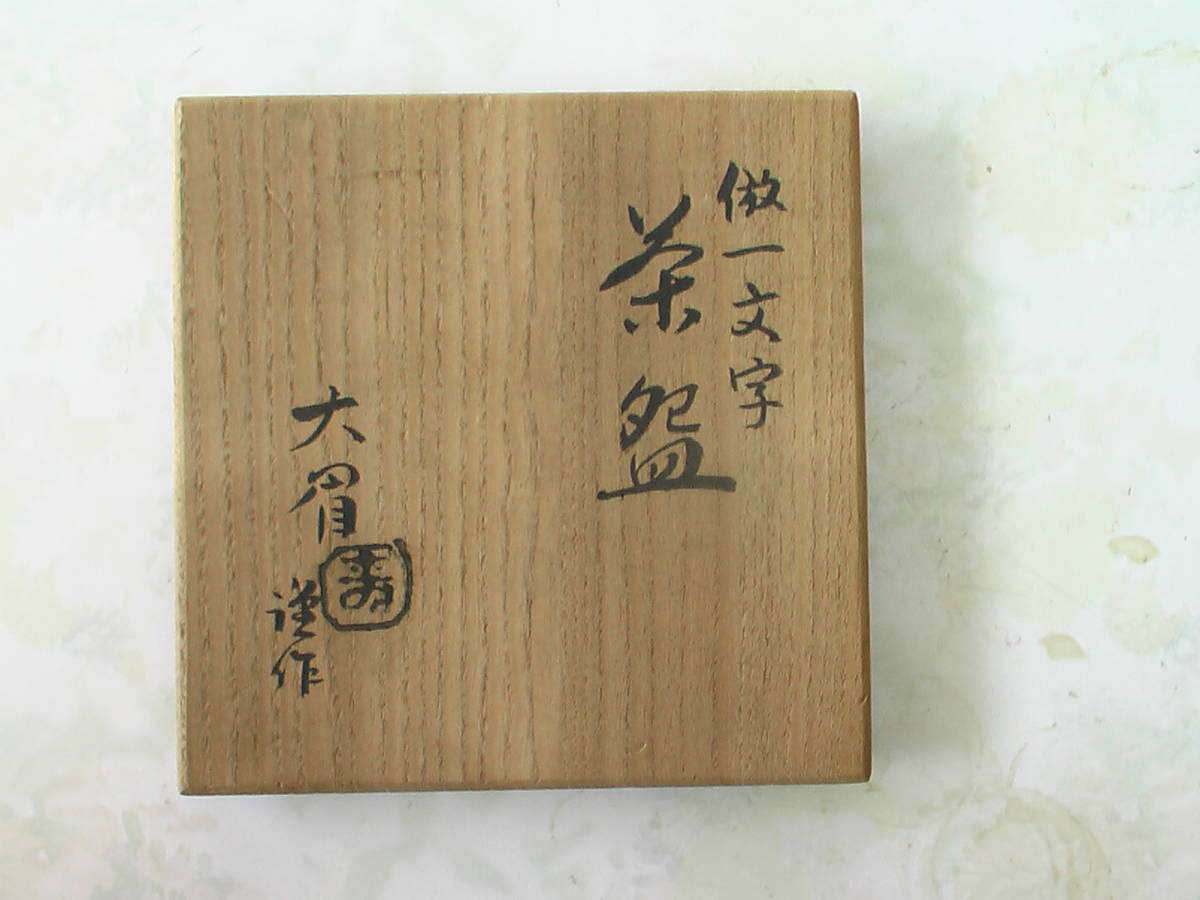 倣一文字
茶盌
大眉
謹作